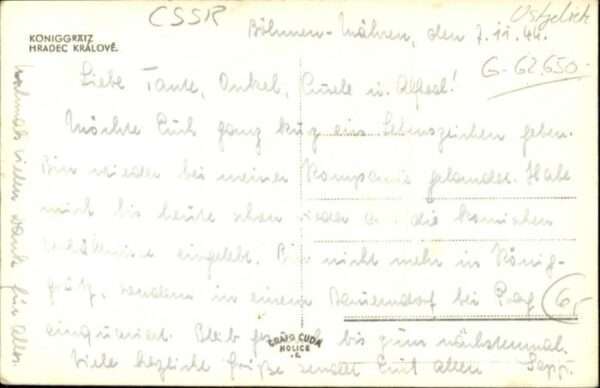 CSSR
KÖNIGGRÄTZ
HRADEC KRÁLOVÉ.
Böhmen-Mähren, den 7.11.44.
G-62.650-
Liebe Tante, Onkel,
Möchte Euch ganz kurz ein Lebenszeichen geben.
Bin wieder bei meiner Kompanie gelandet. Habe
mich bis heute schon wieder an die komischen
Verhältnisse eingelebt. Bin nicht mehr in König-
grätz, sondern in einem Bauerndorf bei Prag
6,-
einquartiert. Bleib bis zum nächstenmal.
Viele herzliche Grüße sendet Euch allen Seppi.
GRAFO ČUDA
HOLICE
Nochmals vielen Dank für alles.